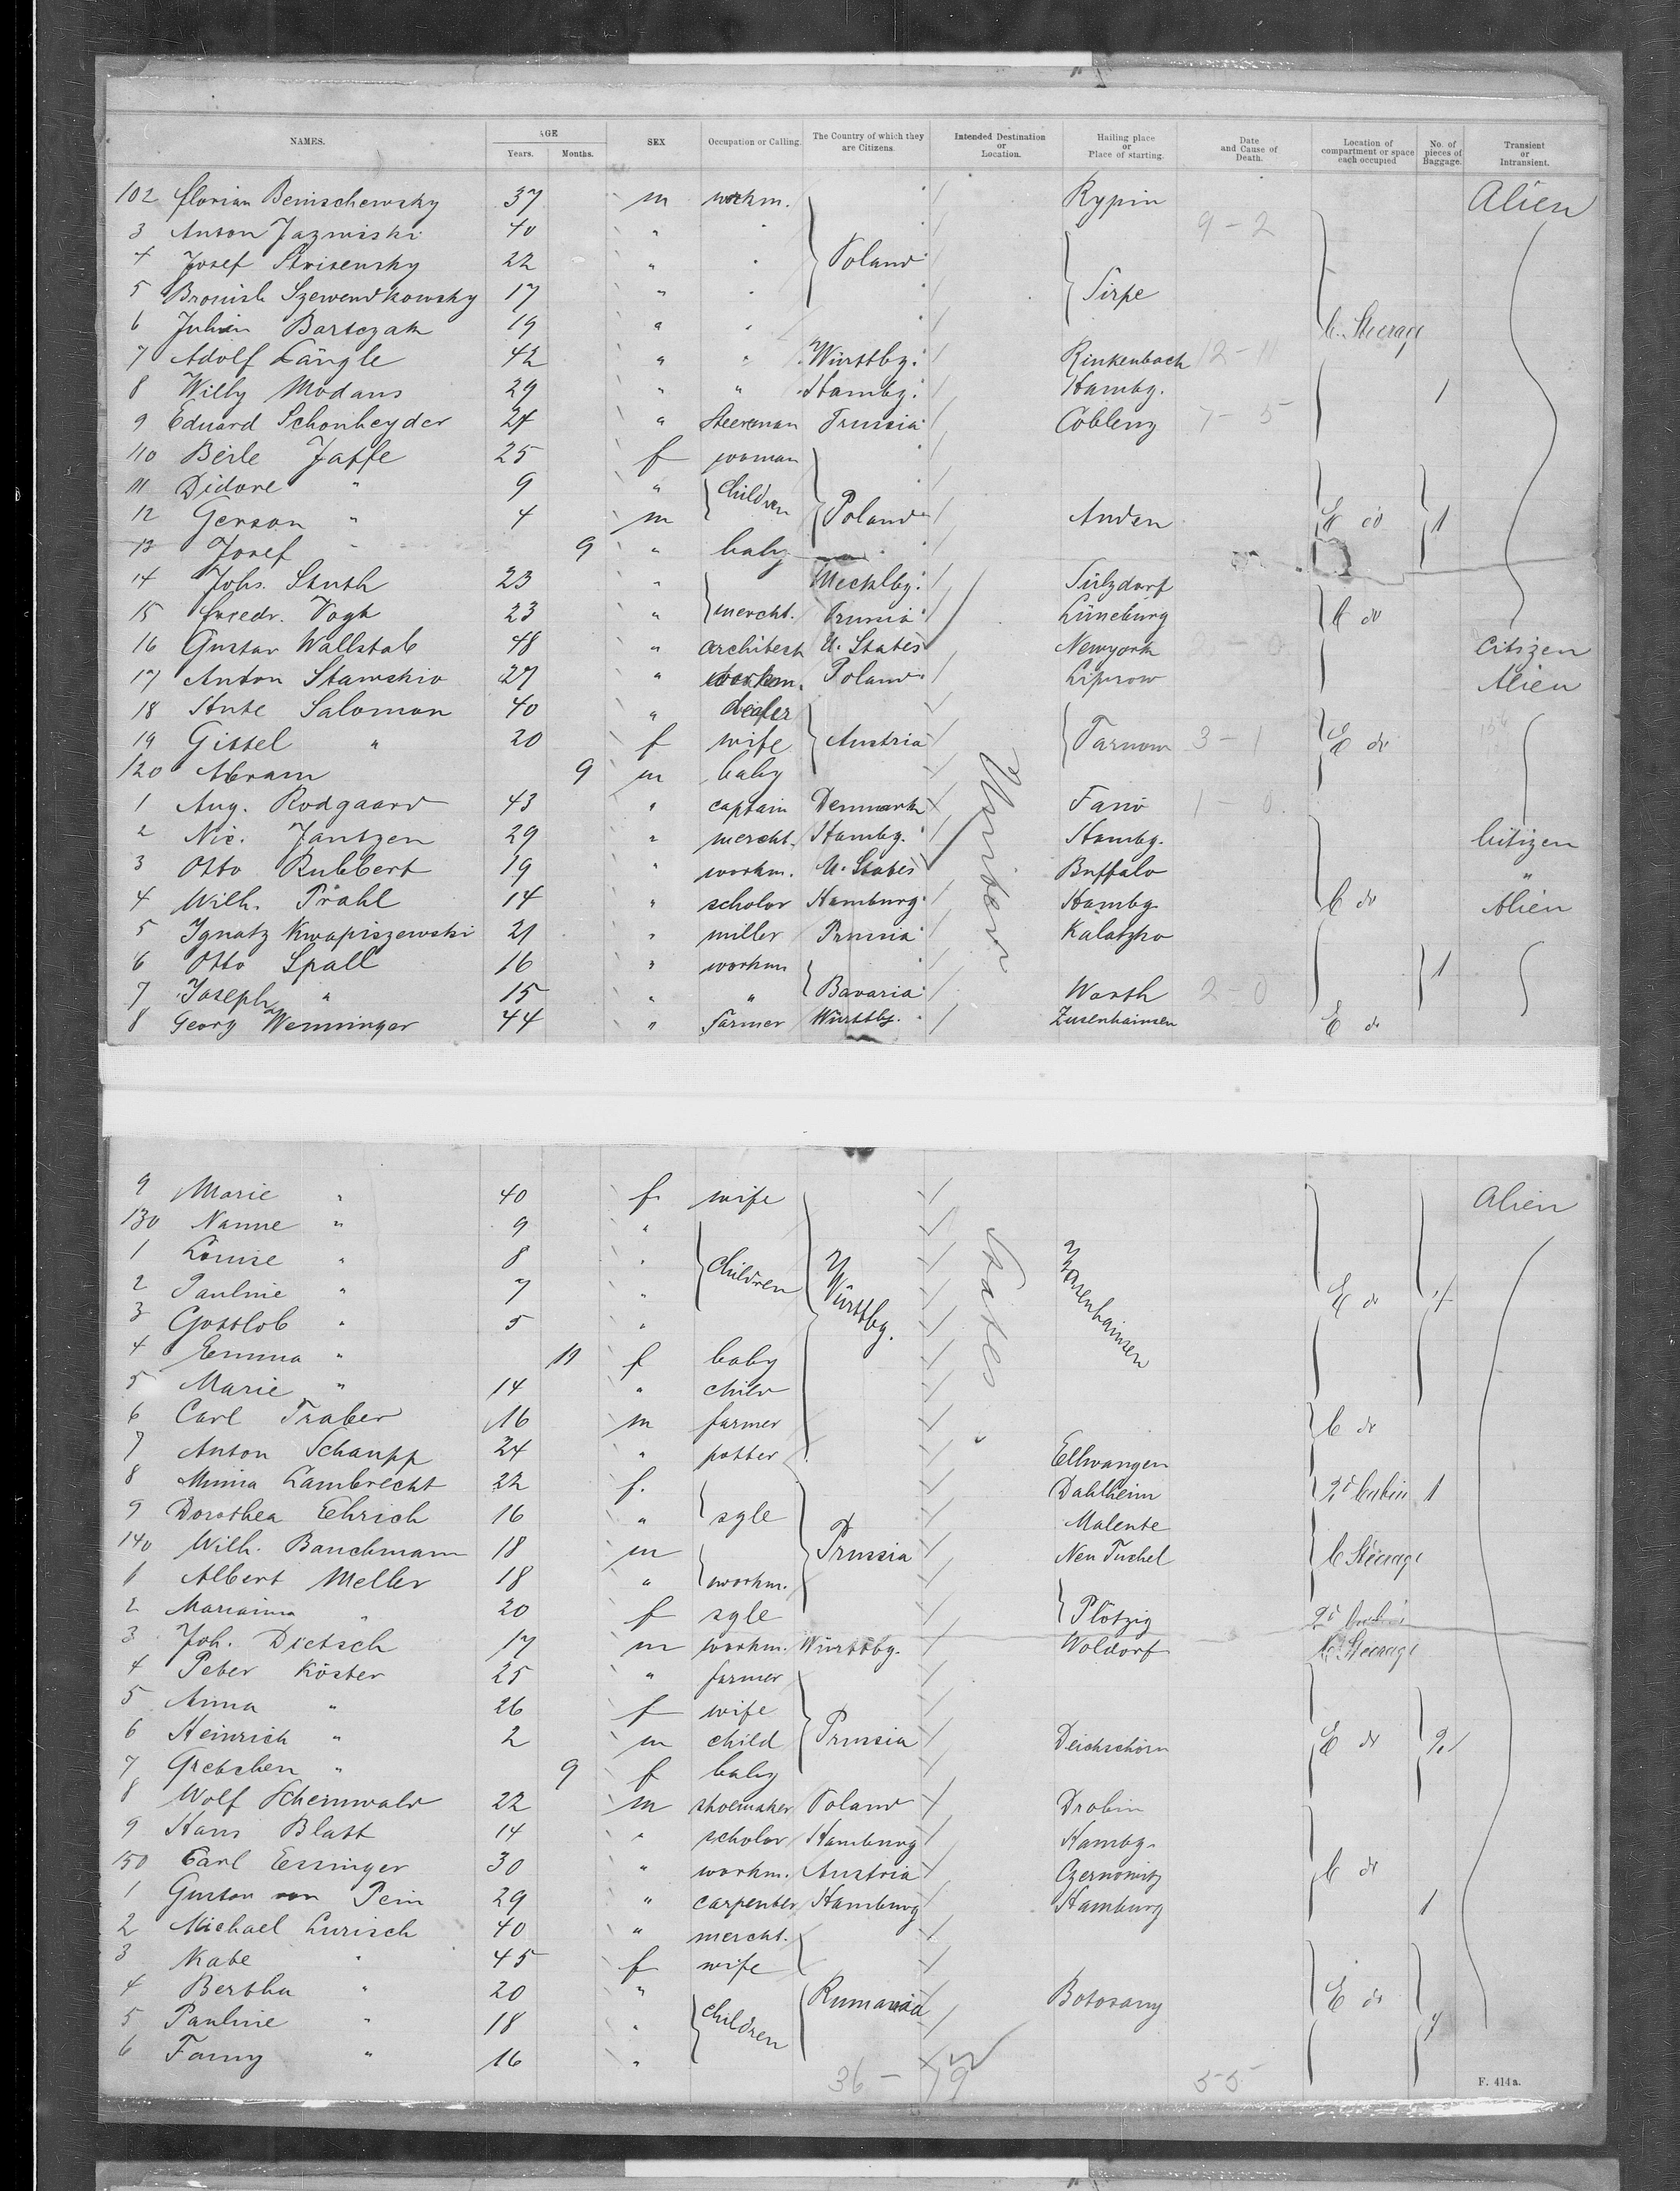 NAMES. AGE Years. Months. SEX Occupation or Calling. The Country of which they are Citizens. Intended Destination or Location. Hailing place or Place of starting. Date and Cause of Death. Location of compartment or space each occupied No. of pieces of Baggage. Transient or Intransient.
102 Florian Benischewsky 37 m workm. Rypin Alien
3 Anton Jazwiski 40 " " 9-2
4 Josef Strisensky 22 " " Poland
5 Bronisl. Szewendkowsky 17 " " Sirpe
6 Julian Bartczak 19 " " C. Steerage
7 Adolf Längle 42 " " Württbg. Rinkenbach 12-11
8 Willy Modans 29 " " Hambg. Hambg. 1
9 Eduard Schonheyder 24 " Steerman Prussia Coblenz 7-5
110 Berle Jaffe 25 f woman
11 Didore " 9 " Children
12 Gerson " 4 m Poland Anden E do 1
13 Josef " 9 " baby
14 Johs. Stuth 23 " Mecklbg. Sülzdorf
15 Friedr. Vogt 23 " mercht. Prussia Lüneburg C do
16 Gustav Wallstab 48 " architect U. States Newyork Citizen
17 Anton Stawskiv 27 " workm. Poland Lipnow Alien
18 Hute Salomon 40 " dealer
19 Gissel " 20 f wife Austria Tarnow 3-1 E do
120 Abram 9 m baby
1 Aug. Rodgaard 43 " captain Denmark Fanö 1 0
2 Nic. Jantzen 29 " mercht. Hambg. Hambg. Citizen
3 Otto Rubbert 19 " workm. U. States Buffalo "
4 Wilh. Prahl 14 " scholar Hamburg Hambg. C do Alien
5 Ignatz Kwapiszewski 21 " miller Prussia Kalatzko
6 Otto Spall 16 " workm 1
7 Joseph " 15 " " Bavaria Worth 2-0
8 Georg Wenninger 44 " Farmer Württbg. Zusenhainsen E do
9 Marie " 40 f wife Alien
130 Nanne " 9 "
1 Louise " 8 " Children Württbg. Zusenhainsen
2 Pauline " 7 " E do 4
3 Gottlob " 5 "
4 Emma " 11 f baby
5 Marie " 14 " child
6 Carl Traber 16 m farmer C do
7 Anton Schaupp 24 " potter Ellwangen
8 Minna Lambrecht 22 f. Dahlheim 2d Cabin 1
9 Dorothea Ehrich 16 " sgle Malente
140 Wilh. Banckmann 18 m Prussia Neu Tuchel C Steerage
1 Albert Meller 18 " workm.
2 Marianna " 20 f sgle Plötzig 2d Cabin
3 Joh. Dietsch 17 m workm. Württbg. Woldorf C. Steerage
4 Peter Köster 25 " farmer
5 Anna " 26 f wife
6 Heinrich " 2 m child Prussia Deichschörn E do 2
7 Gretchen " 9 f baby
8 Wolf Scheinwald 22 m shoemaker Poland Drobin
9 Hans Blatt 14 " scholar Hamburg Hambg.
150 Carl Essinger 30 " workm. Austria Czernowitz C do
1 Gustav von Pein 29 " carpenter Hamburg Hamburg 1
2 Michael Lurisch 40 " mercht.
3 Kate " 45 f wife
4 Bertha " 20 " Rumania Botosany E do
5 Pauline " 18 " children 7
6 Fanny " 16 "
36 - 19 55 F. 414 a.